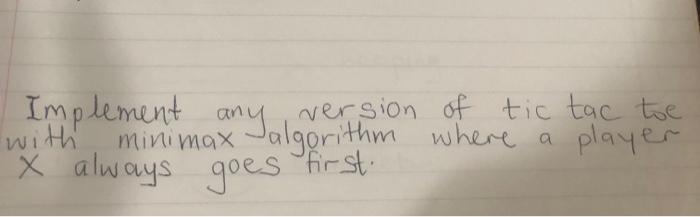 Implement any version of tic tac toe
with minimax algorithm where a player
X always goes first.